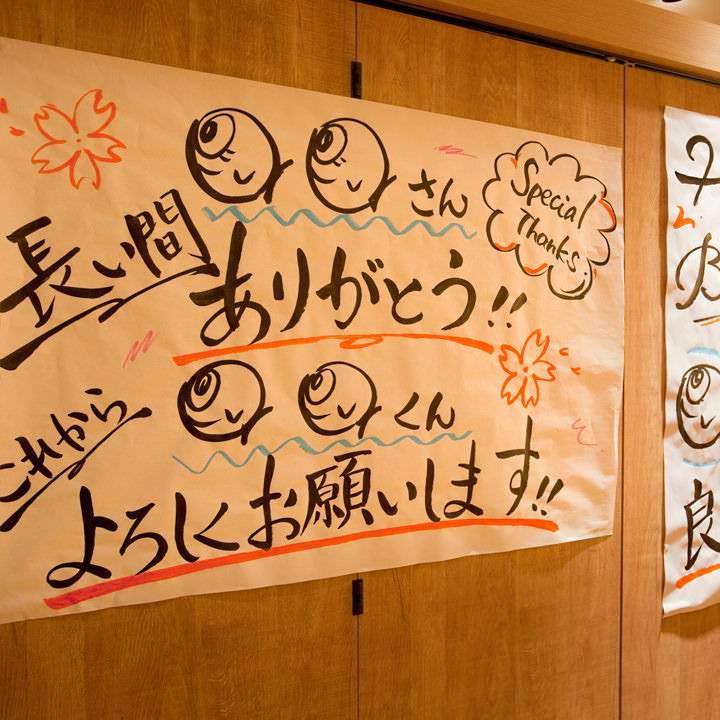 さん
Special
Thanks.
長い間
ありがとう!!
これから
くん
よろしくお願いします!!
良